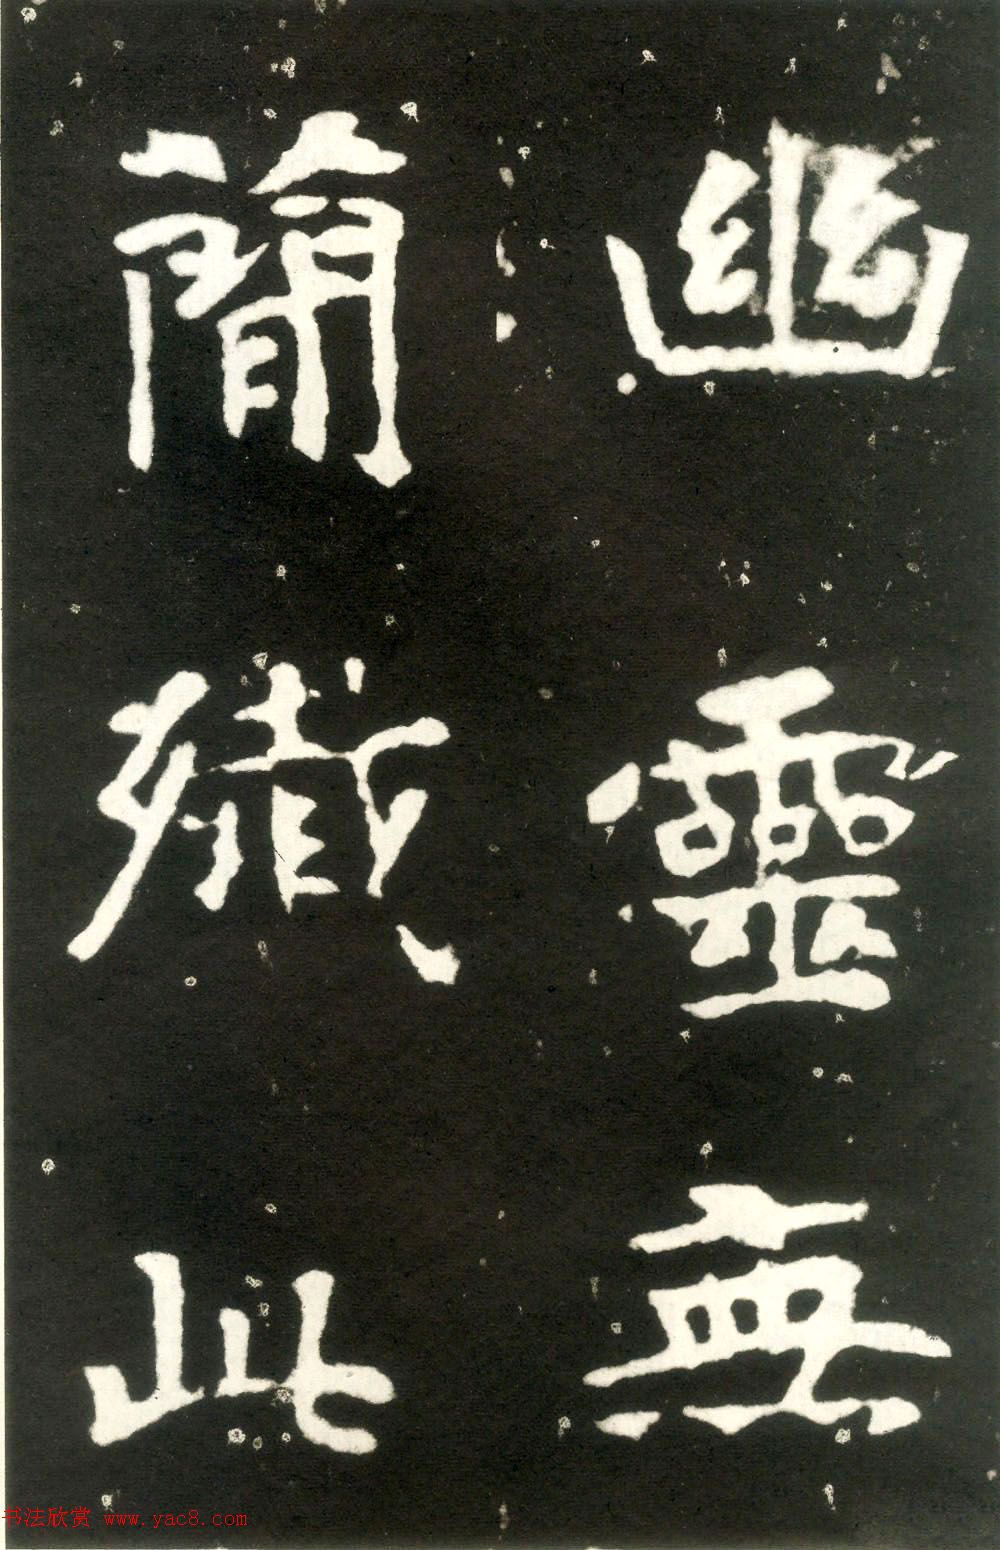 幽靈無
簡殲此
书法欣赏 www.yac8.com